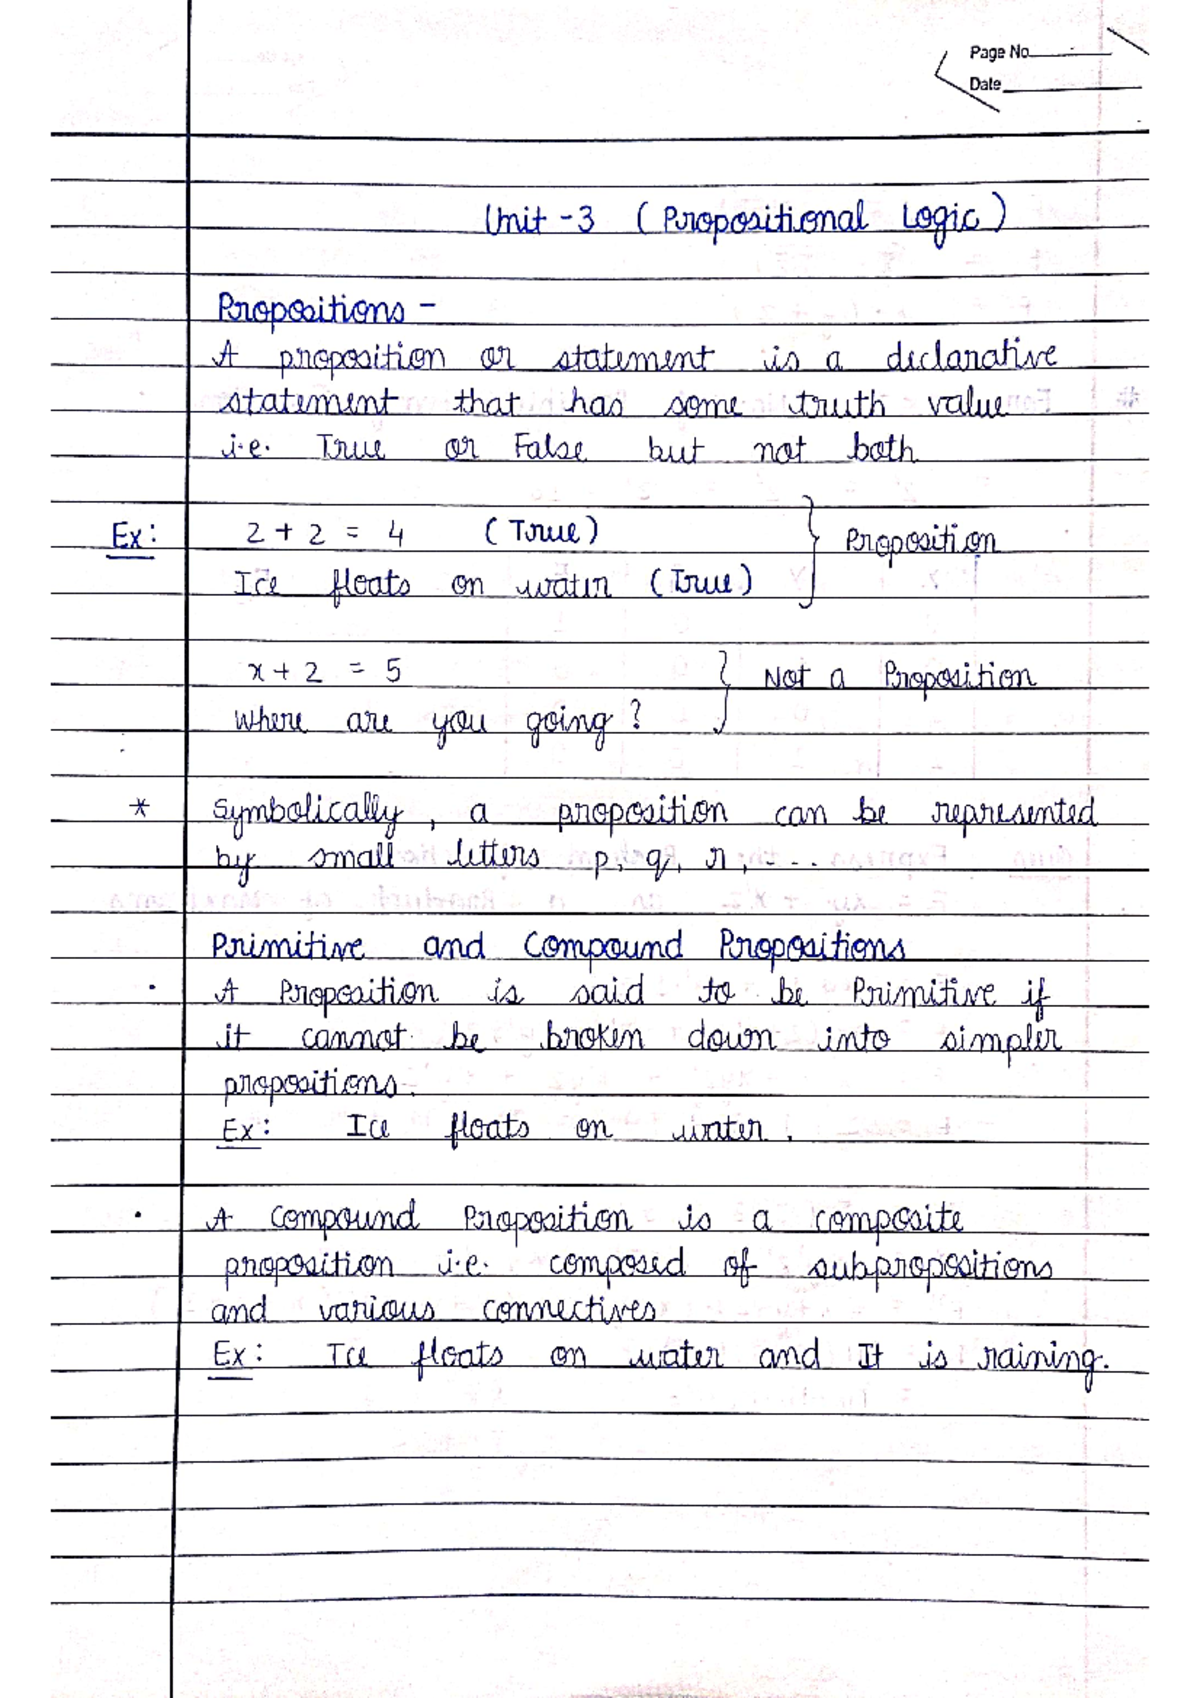 Page No.
Date
Unit - 3 (Propositional Logic)
Propositions -
A proposition or statement is a declarative
statement that has some truth value
i.e. True or False but not both
Ex: 2 + 2 = 4 (True) } Proposition
Ice floats on water (True)
x + 2 = 5 } Not a Proposition
Where are you going?
* Symbolically, a proposition can be represented
by small letters p, q, r, ....
Primitive and Compound Propositions
· A Proposition is said to be Primitive if
it cannot be broken down into simpler
propositions.
Ex: Ice floats on water.
· A Compound Proposition is a composite
proposition i.e. composed of subpropositions
and various connectives
Ex: Ice floats on water and It is raining.